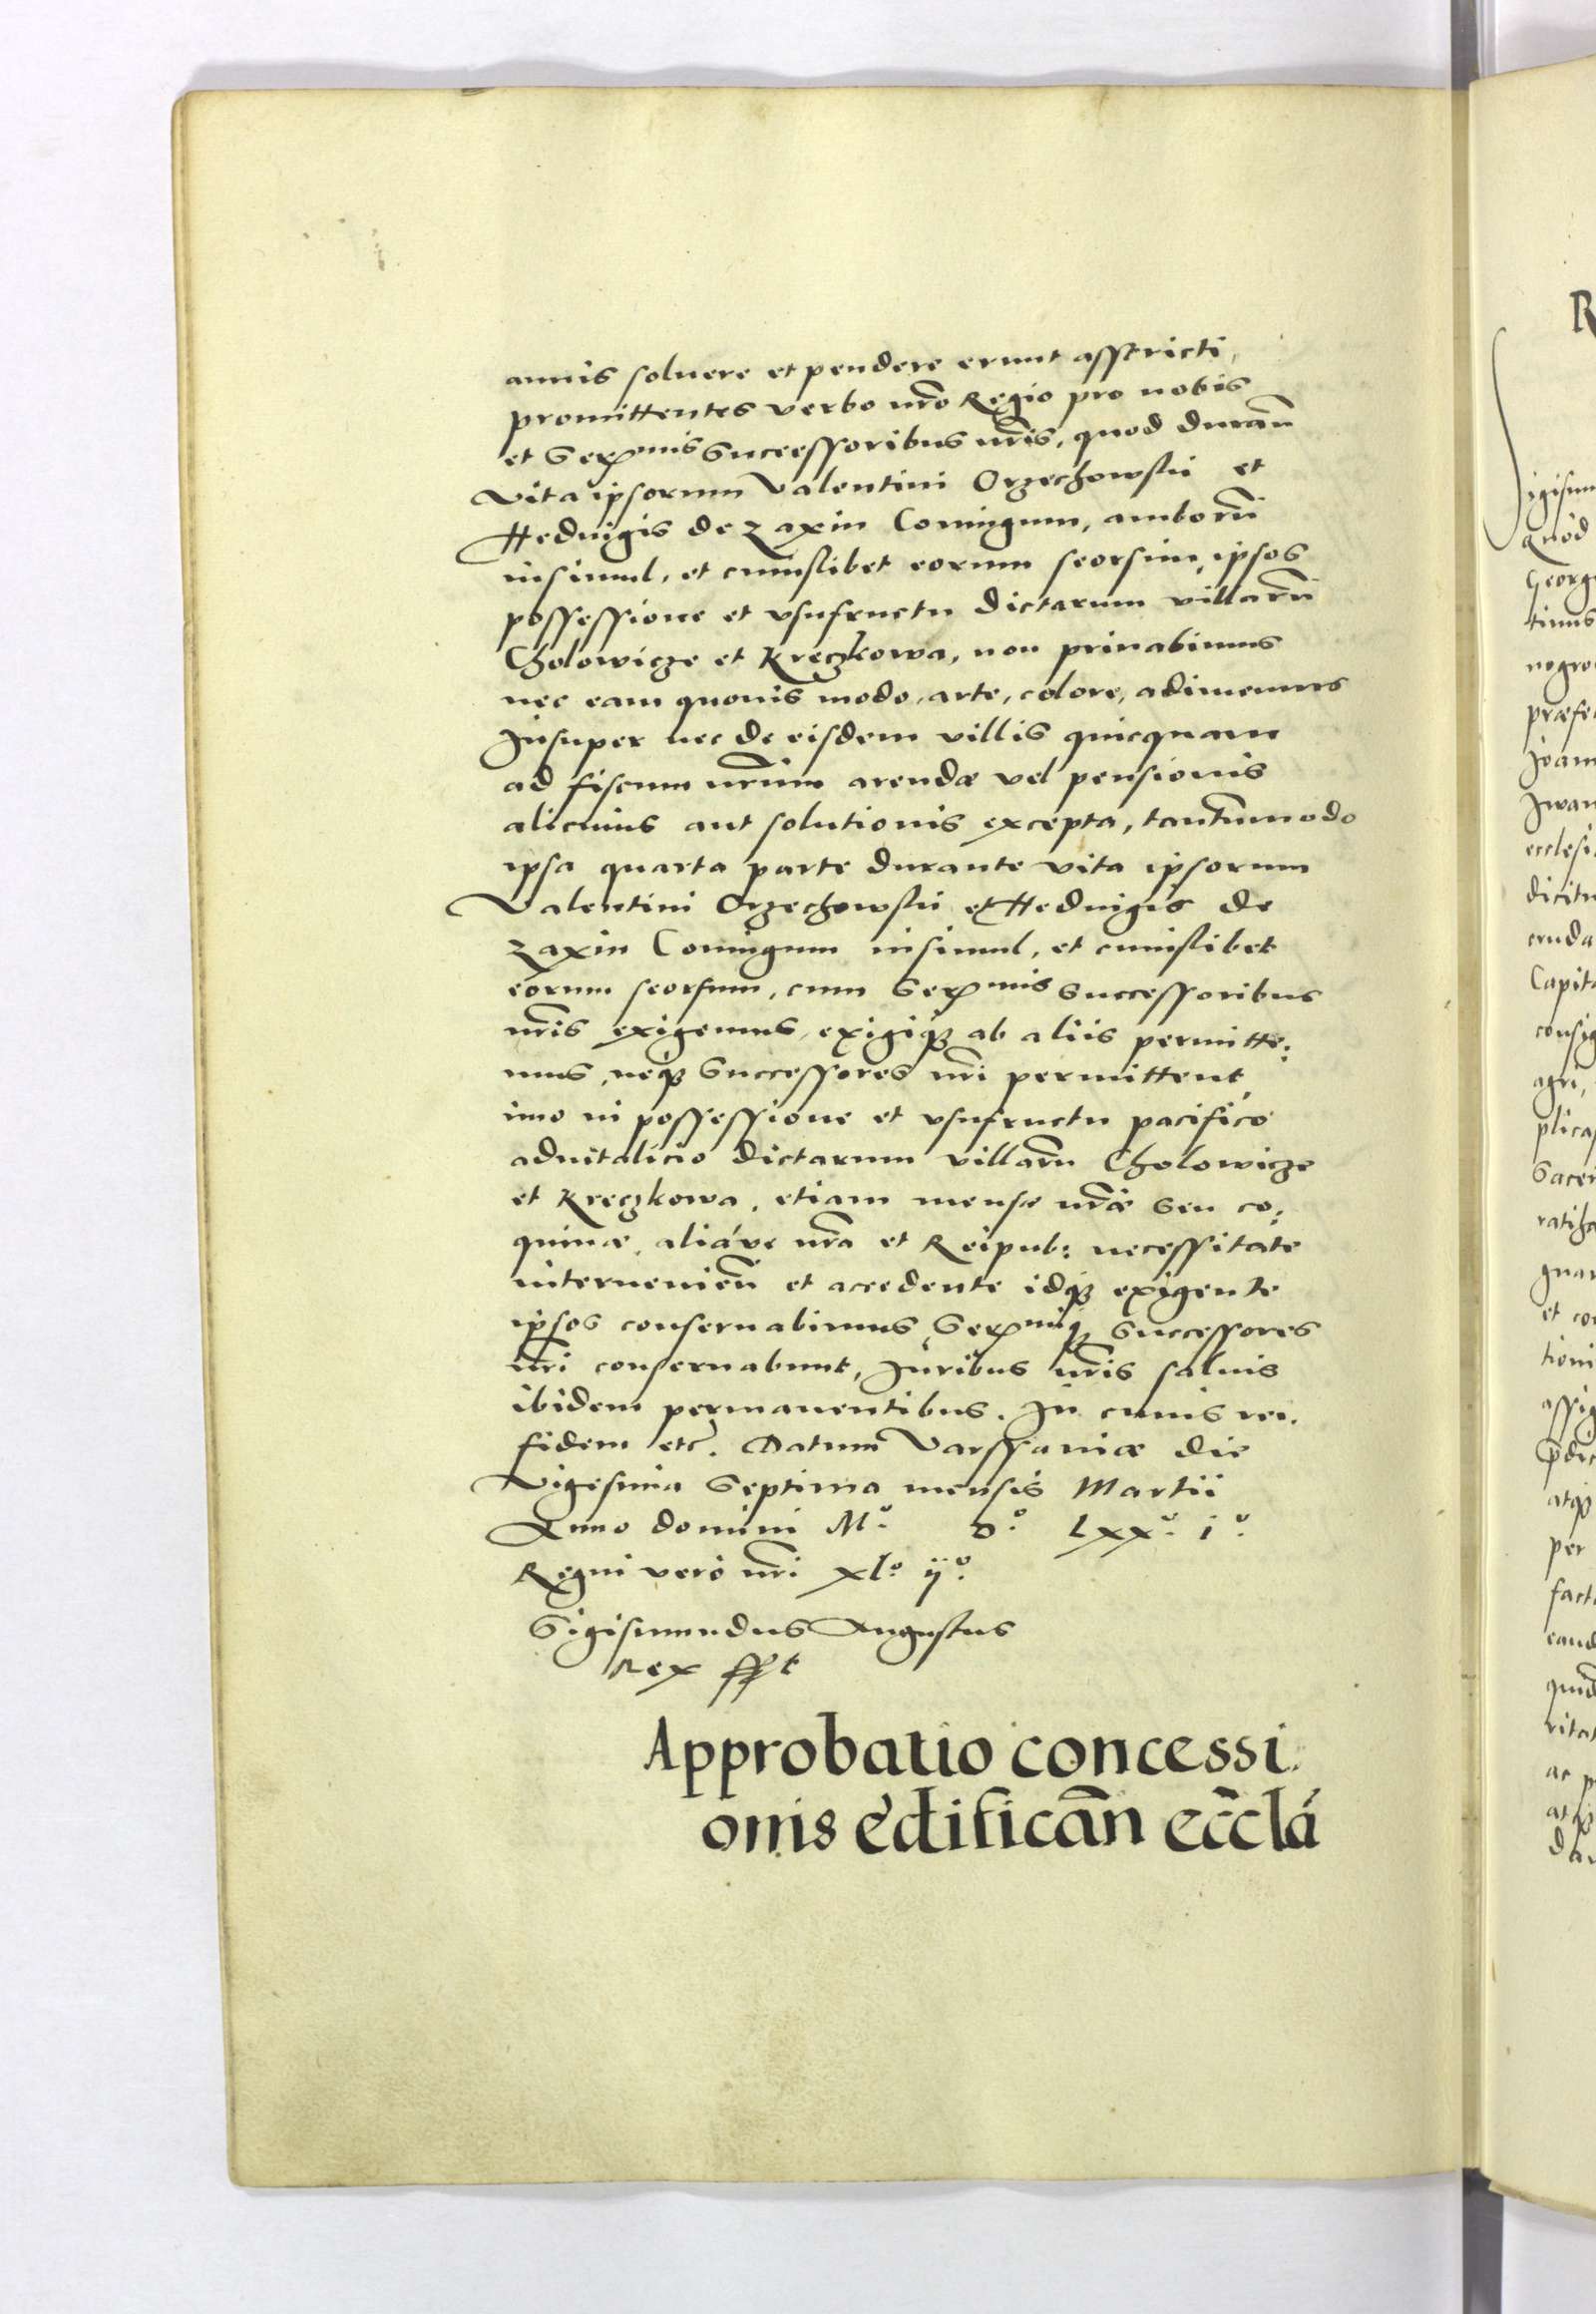 annis soluere et pendere erunt asstricti,
promittentes verbo nr̃o Regio pro nobis
et Serᵐⁱˢ Successoribus nr̃is, quod durañ
vita ipsorum Valentini Orzechowskii et
Heduigis de Zaxin Coniugum, amboru̅
insimul, et cuiuslibet eorum seorsim, ipsos
possessione et vsufructu dictarum villaru̅
Cholowicze et Kreczkowa, non priuabimus
nec eam quouis modo, arte, colore, adimemus
Insuper nec de eisdem villis quicquam
ad fiscum nr̃um arendæ vel pensionis
alicuius aut solutionis excepta, tantummodo
ipsa quarta parte durante vita ipsorum
Valentini Orzechowskii et Heduigis de
Zaxin Coniugum insimul, et cuiuslibet
eorum seorsum, cum Serᵐⁱˢ Successoribus
nr̃is exigemus, exigiq₃ ab aliis permitte:
mus, neq₃ Successores nr̃i permittent,
imo in possessione et vsufructu pacifico
aduitalicio dictarum villaru̅ Cholowicze
et Kreczkowa, etiam mensæ nr̃æ seu co:
quinæ, aliáve nr̃a et Reipub: necessitate
interuenieñ et accedente idq₃ exigente
ipsos conseruabimus, Serᵐⁱq₃ Successores
nr̃i conseruabunt, Iuribus nr̃is saluis
ibidem permanentibus. In cuius rei.
fidem etc̃. Datum Varssauiæ die
Vigesima Septima mensis Martii
Anno domini Mᵒ. Dᵒ. Lxxᵒ. iᵒ.
Regni verò nr̃i xlᵒ. ijᵒ.
Sigismundus Augustus
Rex sspt
Approbatio concessi
onis ędificañ ecc̃lá